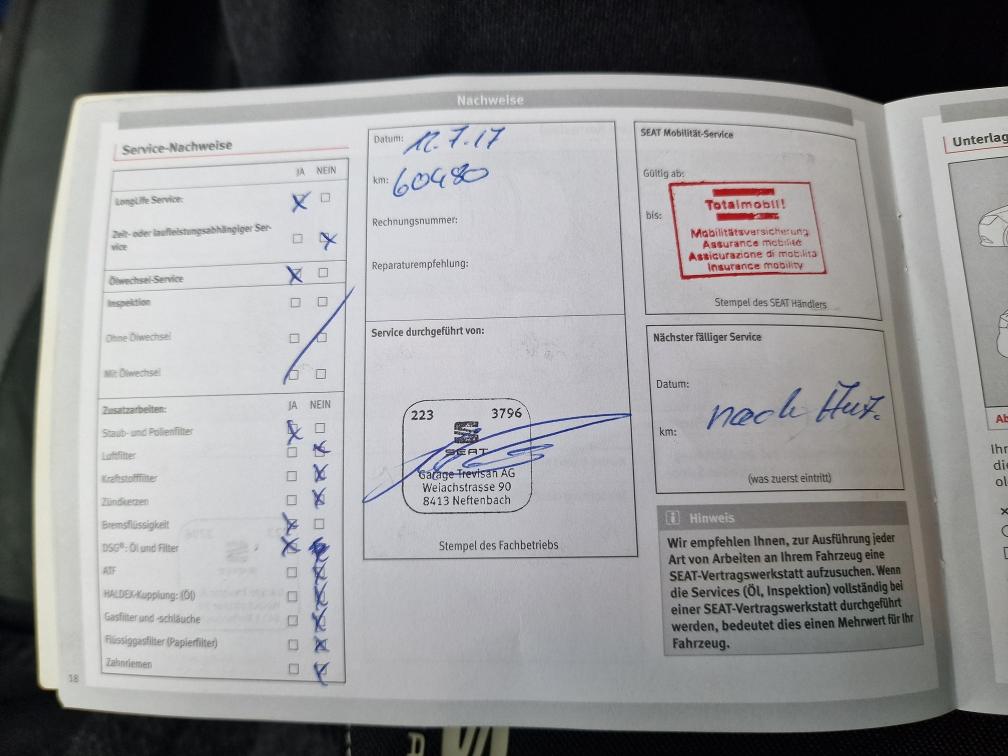 Nachweise
Service-Nachweise
JA NEIN
LongLife Service:
Zeit- oder laufleistungsabhängiger Ser-
vice
Ölwechsel-Service
Inspektion
Ohne Ölwechsel
Mit Ölwechsel
Zusatzarbeiten: JA NEIN
Staub- und Pollenfilter
Luftfilter
Kraftstofffilter
Zündkerzen
Bremsflüssigkeit
DSG®: Öl und Filter
ATF
HALDEX-Kupplung: (Öl)
Gasfilter und -schläuche
Flüssiggasfilter (Papierfilter)
Zahnriemen
18
Datum: 12.7.17
km: 60480
Rechnungsnummer:
Reparaturempfehlung:
Service durchgeführt von:
223 3796
SEAT
Garage Trevisan AG
Weiachstrasse 90
8413 Neftenbach
Stempel des Fachbetriebs
SEAT Mobilität-Service
Gültig ab:
bis:
Totalmobil!
Mobilitätsversicherung
Assurance mobilité
Assicurazione di mobilità
Insurance mobility
Stempel des SEAT Händlers
Nächster fälliger Service
Datum:
nach Anz.
km:
(was zuerst eintritt)
Hinweis
Wir empfehlen Ihnen, zur Ausführung jeder
Art von Arbeiten an Ihrem Fahrzeug eine
SEAT-Vertragswerkstatt aufzusuchen. Wenn
die Services (Öl, Inspektion) vollständig bei
einer SEAT-Vertragswerkstatt durchgeführt
werden, bedeutet dies einen Mehrwert für Ihr
Fahrzeug.
Unterlag
Ab
Ihr
die
ol